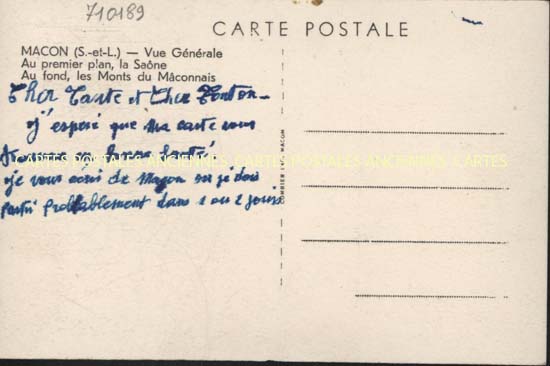 710189
CARTE POSTALE
MACON (S.-et-L.) — Vue Générale
Au premier plan, la Saône
Au fond, les Monts du Mâconnais
Cher Tante et Cher Tonton
j'espere que Ma carte vous
CARTES POSTALES ANCIENNES CARTES POSTALES ANCIENNES CARTES
je vous ecris de Maçon ou je dois
partir probablement dans 1 ou 2 jours
COMBIER IMP. MACON